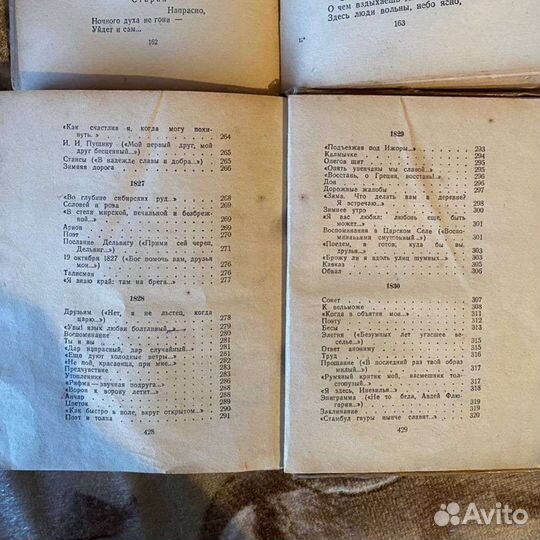 Старик
Напрасно,
Ночного духа не гони —
Уйдет и сам...
162
О чем вздыхаешь
Здесь люди вольны, небо ясно,
163
«Как счастлив я, когда могу поки-
нуть..» 264
И. И. Пущину («Мой первый друг, мой
друг бесценный...») 265
Стансы («В надежде славы и добра...») 265
Зимняя дорога 266
1827
«Во глубине сибирских руд...» 268
Соловей и роза 268
«В степи мирской, печальной и безбреж-
ной...» 269
Арион 269
Поэт 270
Послание Дельвигу («Прими сей череп,
Дельвиг...») 271
19 октября 1827 («Бог помочь вам, друзья
мои...») 276
Талисман 276
«Я знаю край: там на брега...» 277
1828
Друзьям (Нет, я не льстец, когда
царю...») 278
«Увы! язык любви болтливый...» 279
Воспоминание 280
Ты и вы 281
«Дар напрасный, дар случайный...» 281
«Еще дуют холодные ветры...» 282
«Не пой, красавица, при мне...» 282
Предчувствие 283
Утопленник 283
«Рифма — звучная подруга...» 286
«Ворон к ворону летит...» 288
Анчар 288
Цветок 289
«Как быстро в поле, вкруг открытом...» 290
Поэт и толпа 291
428
1829
«Подъезжая под Ижоры...» 293
Калмычке 294
Олегов щит 295
«Опять увенчаны мы славой...» 295
«Восстань, о Греция, восстань!..» 296
Дон 296
Дорожные жалобы 297
«Зима. Что делать нам в деревне?
Я встречаю...» 298
Зимнее утро 300
«Я вас любил: любовь еще, быть
может...» 301
Воспоминания в Царском Селе («Воспо-
минаньями смущенный...») 301
«Поедем, я готов, куда бы вы,
друзья...» 303
«Брожу ли я вдоль улиц шумных...» 303
Кавказ 305
Обвал 306
1830
Сонет 307
К вельможе 308
«Когда в объятия мои...» 311
Поэту 312
Бесы 312
Элегия («Безумных лет угасшее ве-
селье...») 315
Ответ анониму 315
Труд 316
Прощание («В последний раз твой образ
милый...») 317
«Румяный критик мой, насмешник тол-
стопузый...» 317
«Я здесь, Инезилья...» 319
Эпиграмма («Не то беда, Авдей Флю-
гарин...») 319
Заклинание 319
«Стамбул гяуры нынче славят...» 320
429
Avito